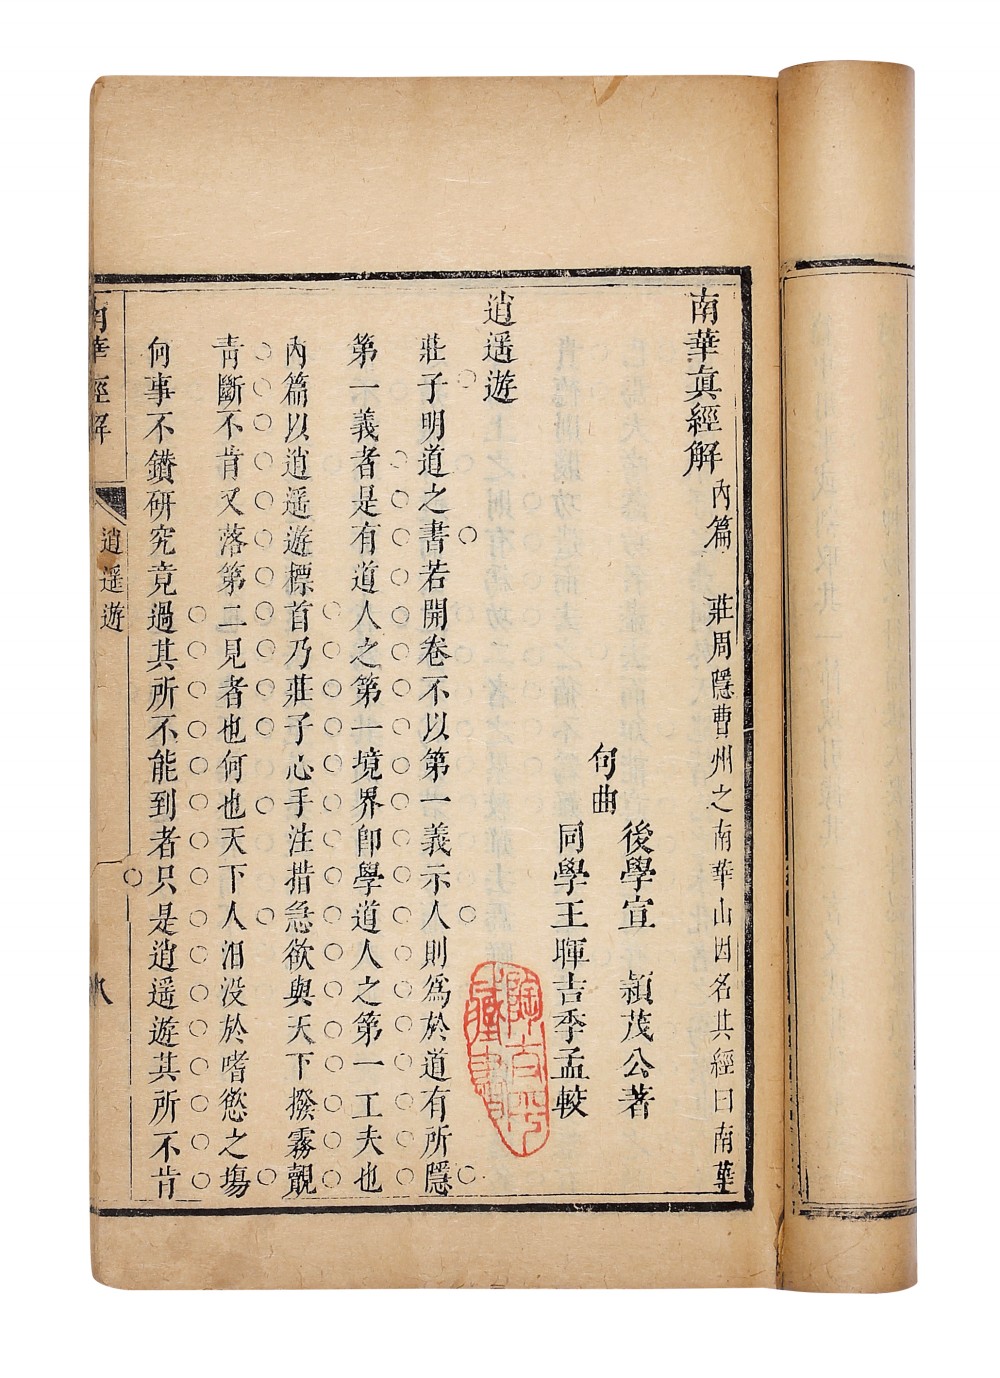 南華眞經解內篇 莊周隱曹州之南華山因名其經曰南華
後學宣 穎茂公著
句曲
同學王暉吉季孟較
逍遥遊
莊子明道之書若開卷不以第一義示人則爲於道有所隱
第一義者是有道人之第一境界卽學道人之第一工夫也
內篇以逍遥遊標首乃莊子心手注措急欲與天下撥霧覩
靑斷不肯又落第二見者也何也天下人汨没於嗜慾之塲
何事不鑚研究竟過其所不能到者只是逍遥遊其所不肯
南華經解
逍遥遊